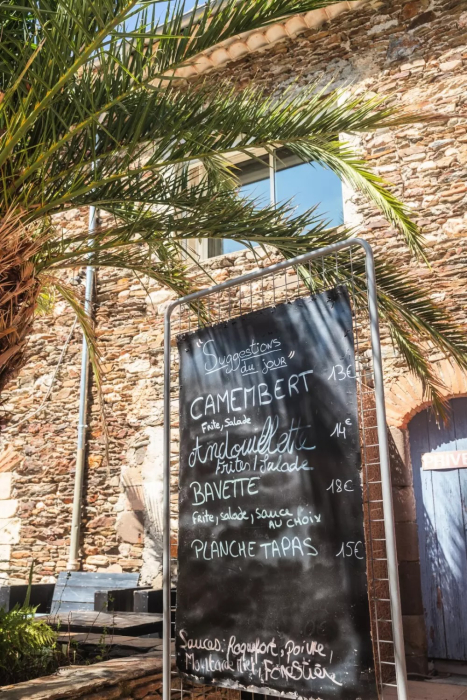 "Suggestions
du jour"
CAMEMBERT 13€
Frite, Salade
Andouillette 14€
Frites/Salade
BAVETTE 18€
Frite, salade, sauce
AU CHOIX
PLANCHE TAPAS 15€
Sauces: Roquefort, Poivre,
Moutarde Miel, FORESTIère